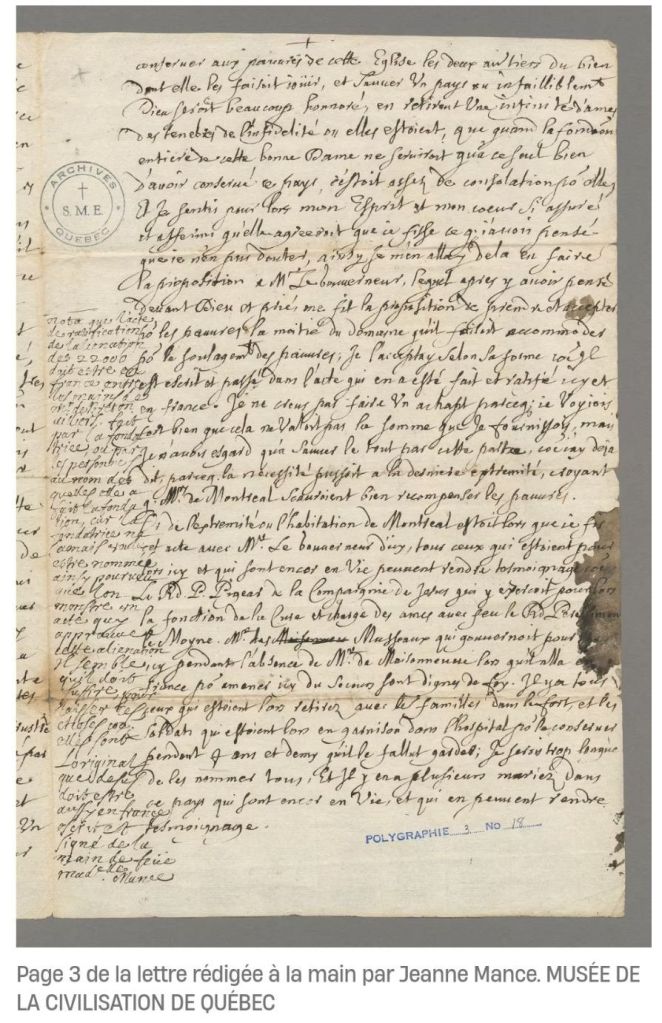 conseruer aux pauures de cette Eglise les deux au tiers du bien
dont elle les faisoit jouir, et sauuer Un pays ou infailliblemt
Dieu seroit beaucoup honnoré, en retirant Une infinité d'ames
des tenebres de l'infidelité ou elles estoient, que quand la fondaõn
entiere de cette bonne Dame ne seruiroit qu'a ce seul bien
d'auoir conserué ce pays, c'estoit assez de consolation po elle,
Et Je sentis pour lors mon Esprit et mon coeur si assuré
et affermi quelle agreeroit que ie fisse ce q j'auois pensé
que ie n'en pus douter, ainsy je m'en allay dela en faire
la proposition a Mr Le Gouuerneur, lequel apres y auoir pensé
deuant Dieu et prié, me fit la proposition de prendre et accepter
po les pauures la moitié du domaine qu'il faisoit accommoder
po le soulagemt des pauures; Je l'acceptay selon la forme
est escrit et passé dans l'acte qui en a esté fait et ratifié icy et
en france. Je ne creus pas faire Un achapt parceq; ie Voyois
fort bien que cela ne Valoit pas la somme que Je fournissois, mais
Je n'auois esgard qu'a sauuer le tout par cette partie, co ie ay deja
dit, parceq la necessité pressoit a la derniere extremité, croyant
q Mrs de Montreal scauroient bien recompenser les pauures.
de l'extremité ou l'habitation de Montreal estoit lors que ie fis
acte auec Mr Le Gouuerneur d'icy, tous ceux qui estoient pour
lors icy et qui sont encor en Vie peuuent rendre tesmoignage
Le Rd P. Pigear de la Compagnie de Jesus qui y exercoit pour lors
la fonction de la Cure et charge des ames auec feu le Rd P.
le Moyne. Mr des Musseaux qui gouuernoit pour
icy pendant l'absence de Mr de Maisonneuue lors qu'il alla
france po amener icy du secours sont dignes de foy. Il y a tous
ceux qui estoient lors retirez auec les familles dans le fort, et les
soldats qui estoient lors en garnison dans l'hospital po le conseruer
pendent 4 ans et demy qu'il le fallut garder; Je serois trop longue
de les nommer tous; Et Il y en a plusieurs mariez dans
ce pays qui sont encor en Vie, et qui en peuuent rendre
tesmoignage.
ARCHIVES
S.M.E.
QUEBEC
nota que l'acte
de ratification
de l'alienation
des 22000
doit estre en
france entre
les mains de
par la fonda
trice ou par
les personnes
au nom des
quelles elle a
fait la fonda
tion, car la
fondatrice n'a
jamais
estre nommée
ainsy pourveu
que l'on
monstre un
acte qui
approuue
cette alienation
il semble
qu'il doit
suffire
l'original
doit estre
aussy en france
escrit et
signé de la
main de feüe
madelle Mance
POLYGRAPHIE 3 No 18
Page 3 de la lettre rédigée à la main par Jeanne Mance. MUSÉE DE
LA CIVILISATION DE QUÉBEC